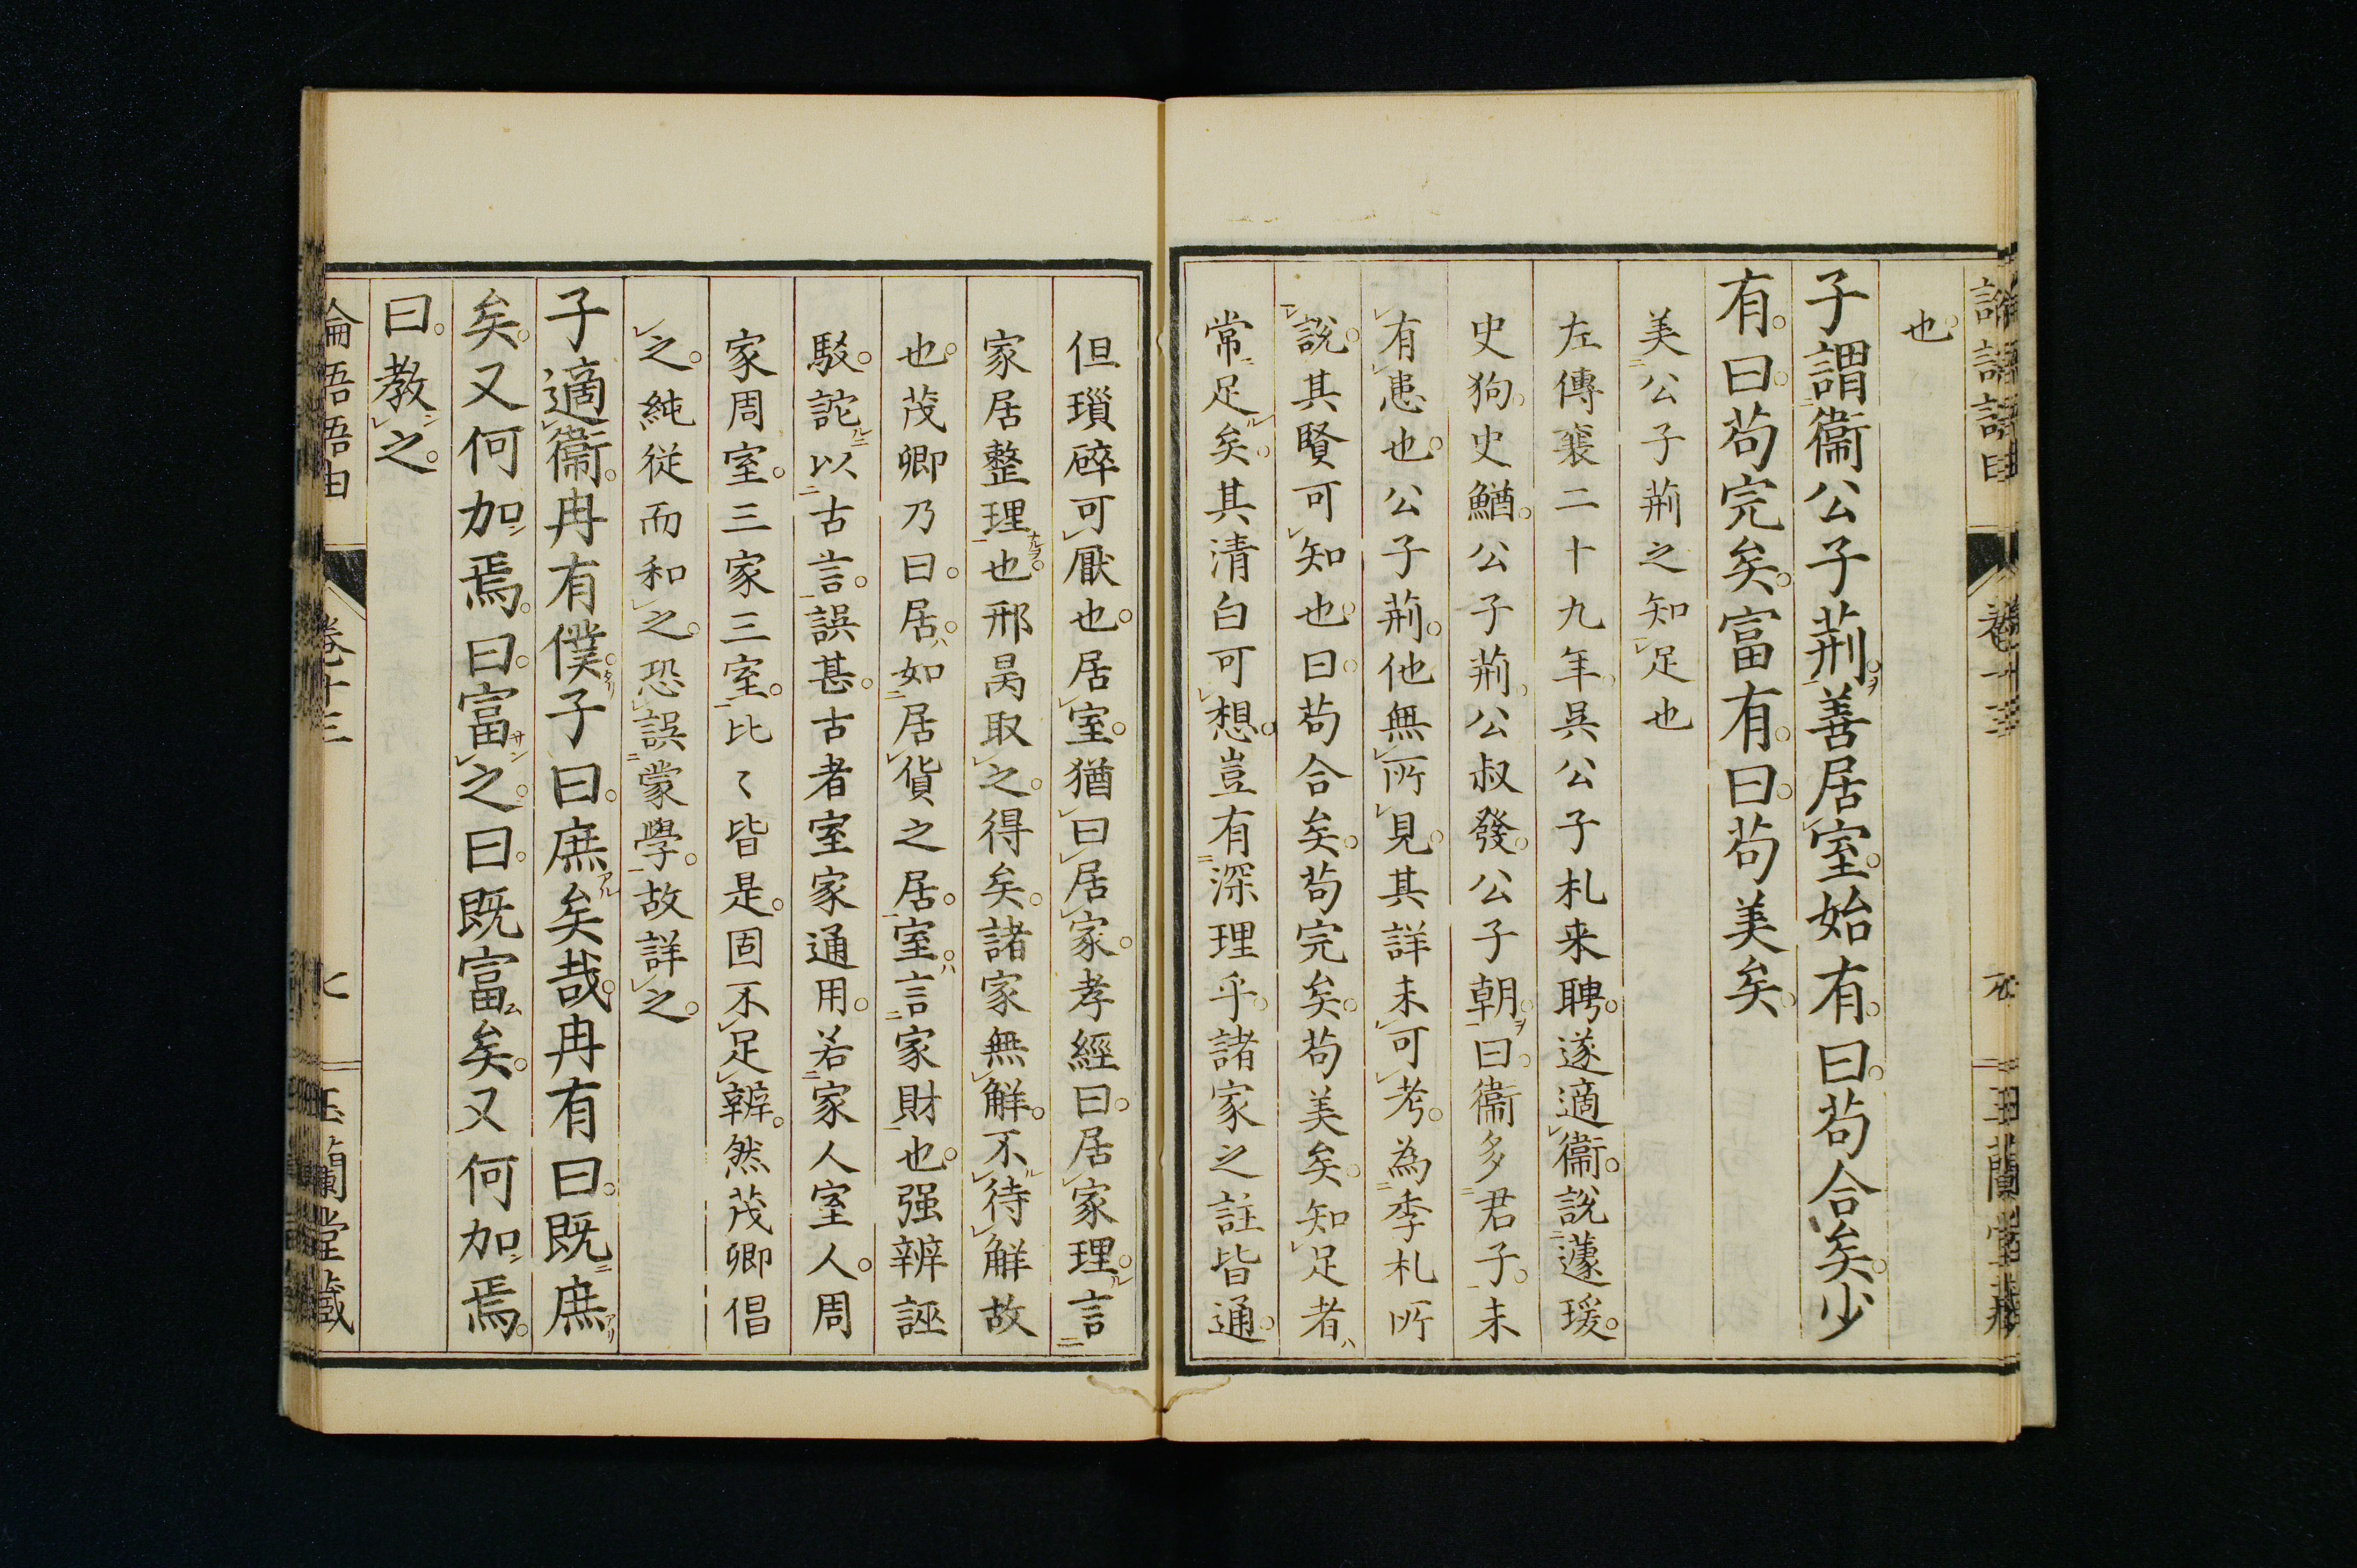 論語語由
卷十三
玉蘭堂藏
也
子謂衞公子荊。善居室。始有。曰。苟合矣。少
有。曰。苟完矣。富有。曰。苟美矣。
美公子荊之知足也
左傳襄二十九年、吳公子札来聘。遂適衞。說蘧瑗。
史狗、史鰌。公子荊、公叔發。公子朝。曰。衞多君子。未
有患也。公子荊。他無所見。其詳未可考。為季札所
說。其賢可知也。曰。苟合矣。苟完矣。苟美矣。知足者
常足矣。其清白可想。豈有深理乎。諸家之註皆通。
但瑣碎可厭也。居室。猶曰居家。孝經曰。居家理。言
家居整理也。邢昺取之。得矣。諸家無解。不待解故
也。茂卿乃曰。居。如居貨之居。室。言家財也。强辨誣
駁。詫以古言。誤甚。古者室家通用。若家人室人。周
家周室。三家三室。比〻皆是。固不足辨。然茂卿倡
之。純從而和之。恐誤蒙學。故詳之。
子適衞。冉有僕。子曰。庶矣哉。冉有曰。既庶
矣。又何加焉。曰。富之。曰。既富矣。又何加焉。
曰。教之。
論語語由
卷十三
七
玉蘭堂藏